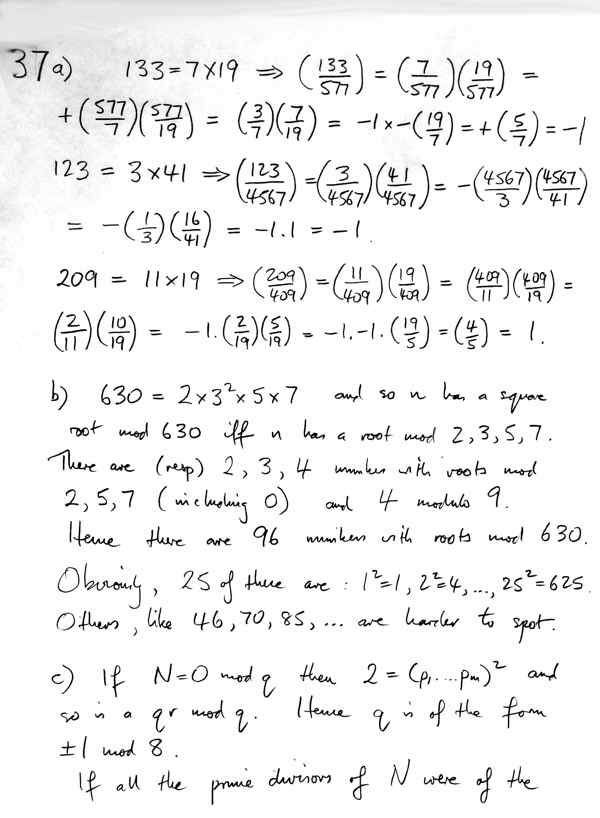 37a) 133 = 7×19 ⇒ (133/577) = (7/577)(19/577) =
+(577/7)(577/19) = (3/7)(7/19) = -1×-(19/7) = +(5/7) = -1
123 = 3×41 ⇒ (123/4567) = (3/4567)(41/4567) = -(4567/3)(4567/41)
= -(1/3)(16/41) = -1.1 = -1.
209 = 11×19 ⇒ (209/409) = (11/409)(19/409) = (409/11)(409/19) =
(2/11)(10/19) = -1.(2/19)(5/19) = -1.-1.(19/5) = (4/5) = 1.
b) 630 = 2×3²×5×7 and so n has a square
root mod 630 iff n has a root mod 2,3,5,7.
There are (resp) 2, 3, 4 numbers with roots mod
2, 5, 7 (including 0) and 4 modulo 9.
Hence there are 96 numbers with roots mod 630.
Obviously, 25 of these are: 1²=1, 2²=4, ..., 25²=625.
Others, like 46, 70, 85, ... are harder to spot.
c) If N=0 mod q then 2 = (p₁....pₘ)² and
so is a qr mod q. Hence q is of the form
±1 mod 8.
If all the prime divisors of N were of the